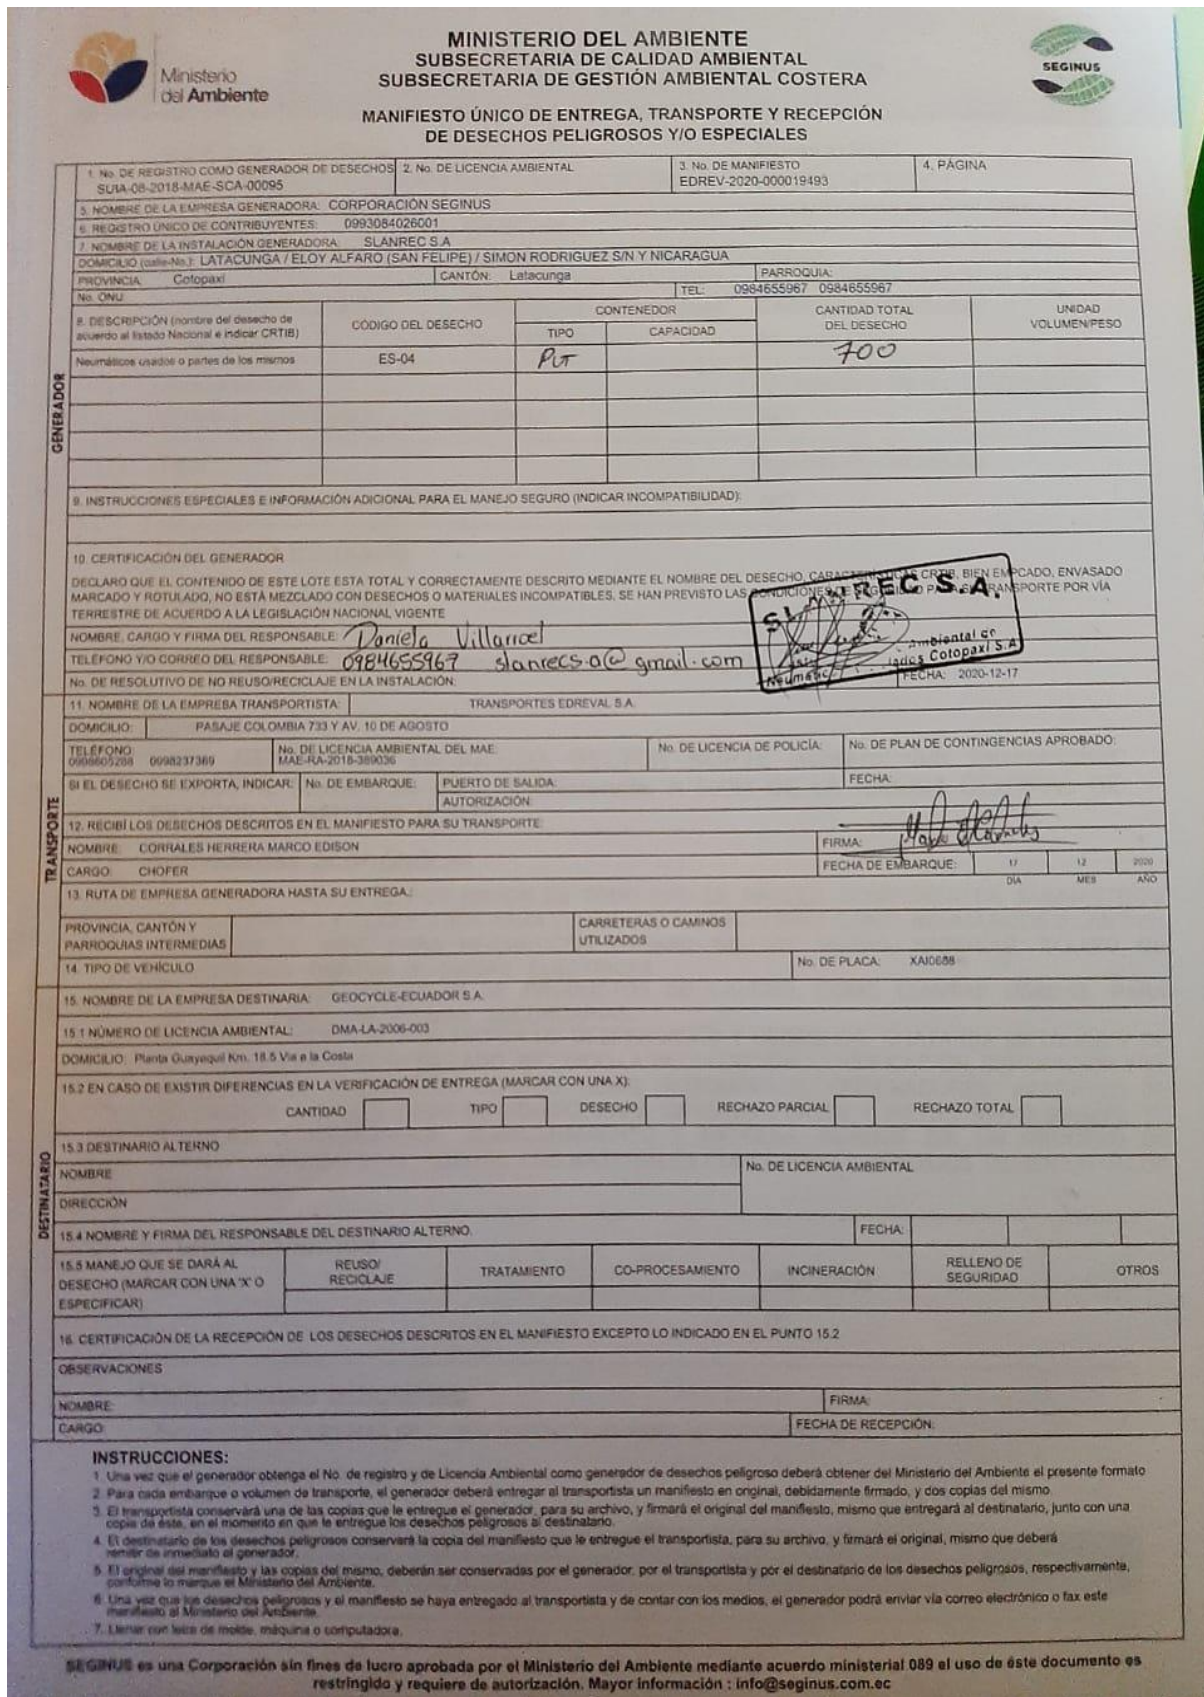 Ministerio
del Ambiente
MINISTERIO DEL AMBIENTE
SUBSECRETARIA DE CALIDAD AMBIENTAL
SUBSECRETARIA DE GESTIÓN AMBIENTAL COSTERA
SEGINUS
MANIFIESTO ÚNICO DE ENTREGA, TRANSPORTE Y RECEPCIÓN
DE DESECHOS PELIGROSOS Y/O ESPECIALES
GENERADOR
1. No. DE REGISTRO COMO GENERADOR DE DESECHOS
SUIA-08-2018-MAE-SCA-00095
2. No. DE LICENCIA AMBIENTAL
3. No. DE MANIFIESTO
EDREV-2020-000019493
4. PÁGINA
5. NOMBRE DE LA EMPRESA GENERADORA: CORPORACIÓN SEGINUS
6. REGISTRO ÚNICO DE CONTRIBUYENTES: 0993084026001
7. NOMBRE DE LA INSTALACIÓN GENERADORA: SLANREC S.A
DOMICILIO (calle-No.): LATACUNGA / ELOY ALFARO (SAN FELIPE) / SIMON RODRIGUEZ S/N Y NICARAGUA
PROVINCIA: Cotopaxi CANTÓN: Latacunga PARROQUIA:
No. ONU TEL: 0984655967 0984655967
8. DESCRIPCIÓN (nombre del desecho de
acuerdo al listado Nacional e indicar CRTIB)
CÓDIGO DEL DESECHO
CONTENEDOR
TIPO CAPACIDAD
CANTIDAD TOTAL
DEL DESECHO
UNIDAD
VOLUMEN/PESO
Neumáticos usados o partes de los mismos ES-04 PLT 700
9. INSTRUCCIONES ESPECIALES E INFORMACIÓN ADICIONAL PARA EL MANEJO SEGURO (INDICAR INCOMPATIBILIDAD):
10. CERTIFICACIÓN DEL GENERADOR
DECLARO QUE EL CONTENIDO DE ESTE LOTE ESTA TOTAL Y CORRECTAMENTE DESCRITO MEDIANTE EL NOMBRE DEL DESECHO, CRTIB, BIEN EMPCADO, ENVASADO
MARCADO Y ROTULADO, NO ESTÁ MEZCLADO CON DESECHOS O MATERIALES INCOMPATIBLES, SE HAN PREVISTO LAS CONDICIONES DE TRANSPORTE POR VÍA
TERRESTRE DE ACUERDO A LA LEGISLACIÓN NACIONAL VIGENTE
NOMBRE, CARGO Y FIRMA DEL RESPONSABLE: Daniela Villarroel
TELÉFONO Y/O CORREO DEL RESPONSABLE: 0984655967 slanrecs.a@gmail.com
No. DE RESOLUTIVO DE NO REUSO/RECICLAJE EN LA INSTALACIÓN: FECHA: 2020-12-17
S.A.
Ambiental
Cotopaxi S.A
TRANSPORTE
11. NOMBRE DE LA EMPRESA TRANSPORTISTA: TRANSPORTES EDREVAL S.A.
DOMICILIO: PASAJE COLOMBIA 733 Y AV. 10 DE AGOSTO
TELÉFONO: 0998237369
No. DE LICENCIA AMBIENTAL DEL MAE:
MAE-RA-2018-389036
No. DE LICENCIA DE POLICÍA:
No. DE PLAN DE CONTINGENCIAS APROBADO:
SI EL DESECHO SE EXPORTA, INDICAR: No. DE EMBARQUE: PUERTO DE SALIDA: FECHA:
AUTORIZACIÓN:
12. RECIBÍ LOS DESECHOS DESCRITOS EN EL MANIFIESTO PARA SU TRANSPORTE
NOMBRE: CORRALES HERRERA MARCO EDISON FIRMA:
CARGO: CHOFER FECHA DE EMBARQUE: 17 12 2020
DIA MES AÑO
13. RUTA DE EMPRESA GENERADORA HASTA SU ENTREGA:
PROVINCIA, CANTÓN Y
PARROQUIAS INTERMEDIAS
CARRETERAS O CAMINOS
UTILIZADOS
14. TIPO DE VEHÍCULO No. DE PLACA: XAI0688
DESTINATARIO
15. NOMBRE DE LA EMPRESA DESTINARIA: GEOCYCLE-ECUADOR S.A.
15.1 NÚMERO DE LICENCIA AMBIENTAL: DMA-LA-2006-003
DOMICILIO: Planta Guayaquil Km. 18.5 Via a la Costa
15.2 EN CASO DE EXISTIR DIFERENCIAS EN LA VERIFICACIÓN DE ENTREGA (MARCAR CON UNA X):
CANTIDAD TIPO DESECHO RECHAZO PARCIAL RECHAZO TOTAL
15.3 DESTINARIO ALTERNO
NOMBRE No. DE LICENCIA AMBIENTAL
DIRECCIÓN
15.4 NOMBRE Y FIRMA DEL RESPONSABLE DEL DESTINARIO ALTERNO. FECHA:
15.5 MANEJO QUE SE DARÁ AL
DESECHO (MARCAR CON UNA 'X' O
ESPECIFICAR)
REUSO/
RECICLAJE
TRATAMIENTO
CO-PROCESAMIENTO
INCINERACIÓN
RELLENO DE
SEGURIDAD
OTROS
16. CERTIFICACIÓN DE LA RECEPCIÓN DE LOS DESECHOS DESCRITOS EN EL MANIFIESTO EXCEPTO LO INDICADO EN EL PUNTO 15.2
OBSERVACIONES
NOMBRE: FIRMA:
CARGO: FECHA DE RECEPCIÓN:
INSTRUCCIONES:
1. Una vez que el generador obtenga el No. de registro y de Licencia Ambiental como generador de desechos peligroso deberá obtener del Ministerio del Ambiente el presente formato
2. Para cada embarque o volumen de transporte, el generador deberá entregar al transportista un manifiesto en original, debidamente firmado, y dos copias del mismo.
3. El transportista conservará una de las copias que le entregue el generador, para su archivo, y firmará el original del manifiesto, mismo que entregará al destinatario, junto con una
copia de éste, en el momento en que le entregue los desechos peligrosos al destinatario.
4. El destinatario de los desechos peligrosos conservará la copia del manifiesto que le entregue el transportista, para su archivo, y firmará el original, mismo que deberá
remitir de inmediato al generador.
5. El original del manifiesto y las copias del mismo, deberán ser conservadas por el generador, por el transportista y por el destinatario de los desechos peligrosos, respectivamente,
conforme lo marque el Ministerio del Ambiente.
6. Una vez que los desechos peligrosos y el manifiesto se haya entregado al transportista y de contar con los medios, el generador podrá enviar vía correo electrónico o fax este
manifiesto al Ministerio del Ambiente.
7. Llenar con letra de molde, máquina o computadora.
SEGINUS es una Corporación sin fines de lucro aprobada por el Ministerio del Ambiente mediante acuerdo ministerial 089 el uso de éste documento es
restringido y requiere de autorización. Mayor información : info@seginus.com.ec